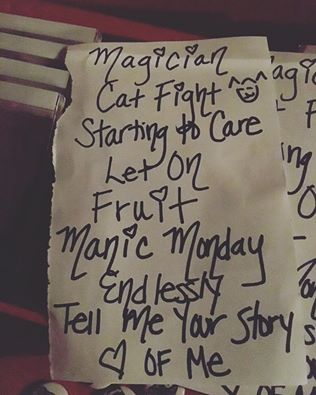 Magician
Cat Fight
Starting to Care
Let On
Fruit
Manic Monday
Endlessly
Tell Me Your Story
♡ OF Me
agic
F
ing